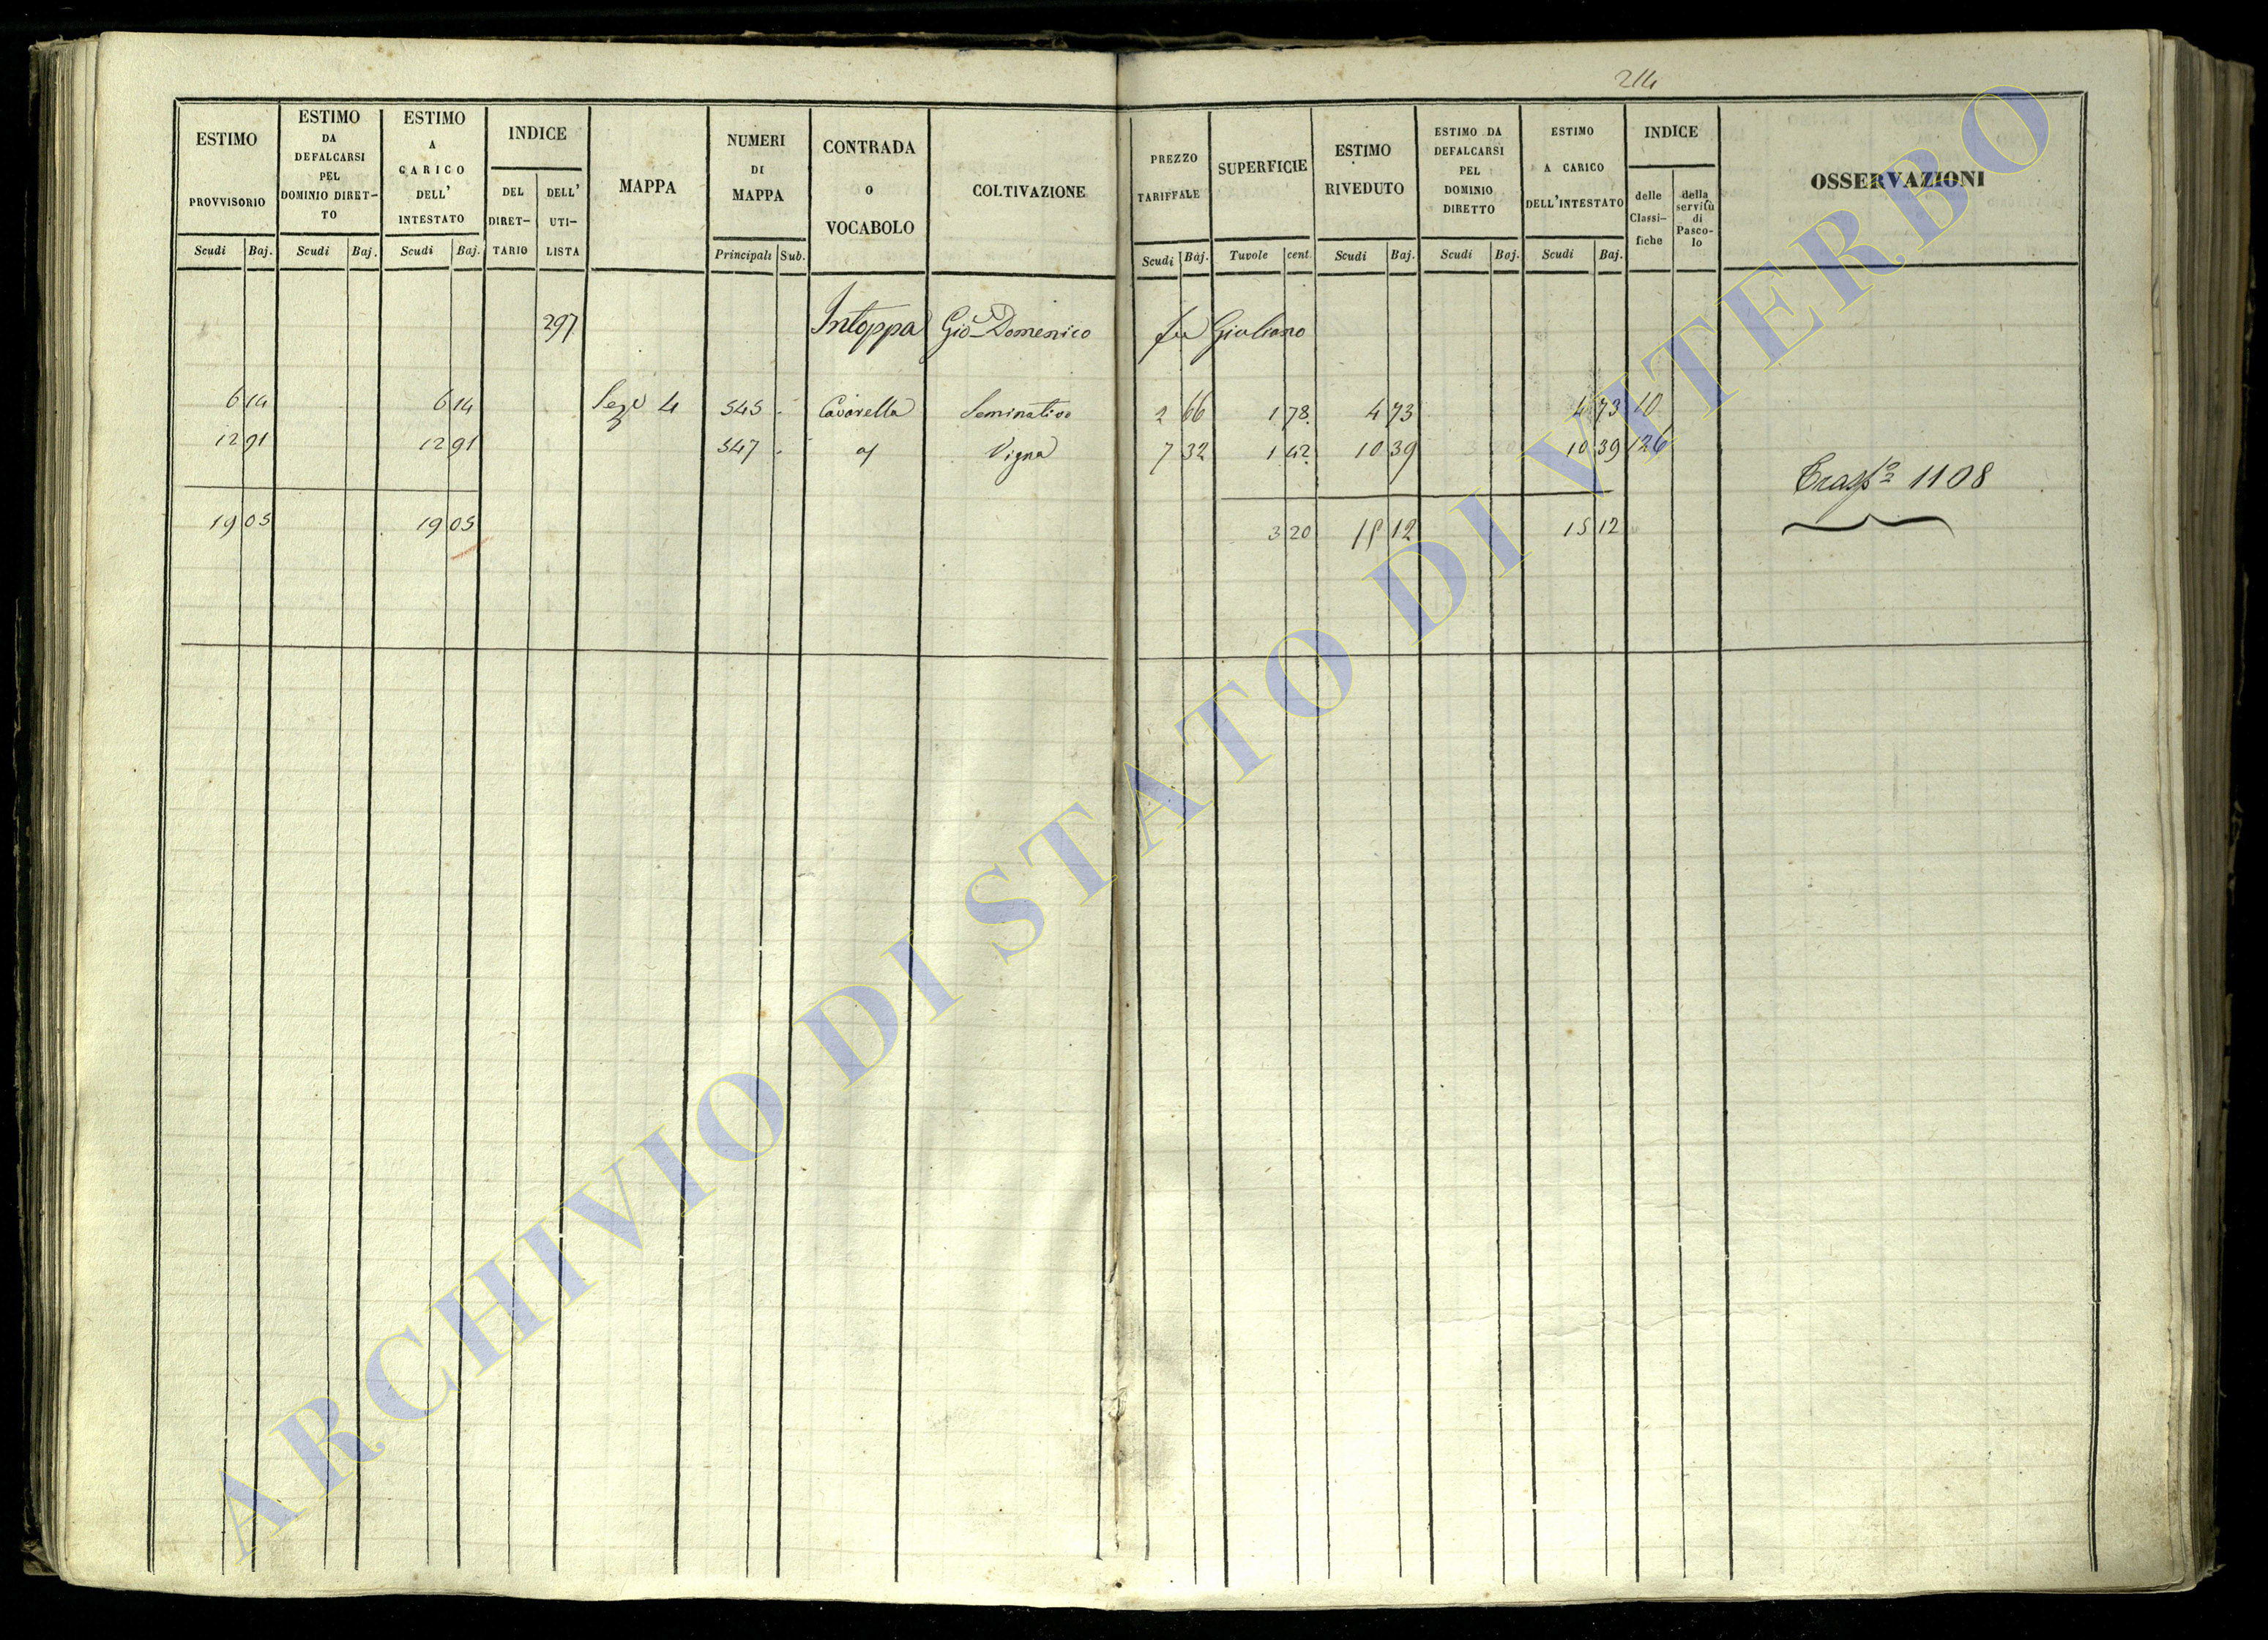 214
ESTIMO PROVVISORIO
ESTIMO DA DEFALCARSI PEL DOMINIO DIRET-TO
ESTIMO A CARICO DELL' INTESTATO
INDICE
DEL DIRET-TARIO
DELL' UTI-LISTA
MAPPA
NUMERI DI MAPPA
CONTRADA O VOCABOLO
COLTIVAZIONE
PREZZO TARIFFALE
SUPERFICIE
ESTIMO RIVEDUTO
ESTIMO DA DEFALCARSI PEL DOMINIO DIRETTO
ESTIMO A CARICO DELL'INTESTATO
INDICE
delle Classi-fiche
della servitù di Pasco-lo
OSSERVAZIONI
Scudi Baj. Scudi Baj. Scudi Baj. Principali Sub. Scudi Baj. Tavole cent. Scudi Baj. Scudi Baj. Scudi Baj.
297 Intoppa Gio Domenico fu Giuliano
6 14 6 14 4 545 Cavarella Seminativo 2 66 1 78 4 73 4 73 10
12 91 12 91 547 Vigna 7 32 1 42 10 39 10 39 126
19 05 19 05 3 20 15 12 15 12
1108
ARCHIVIO DI STATO DI VITERBO